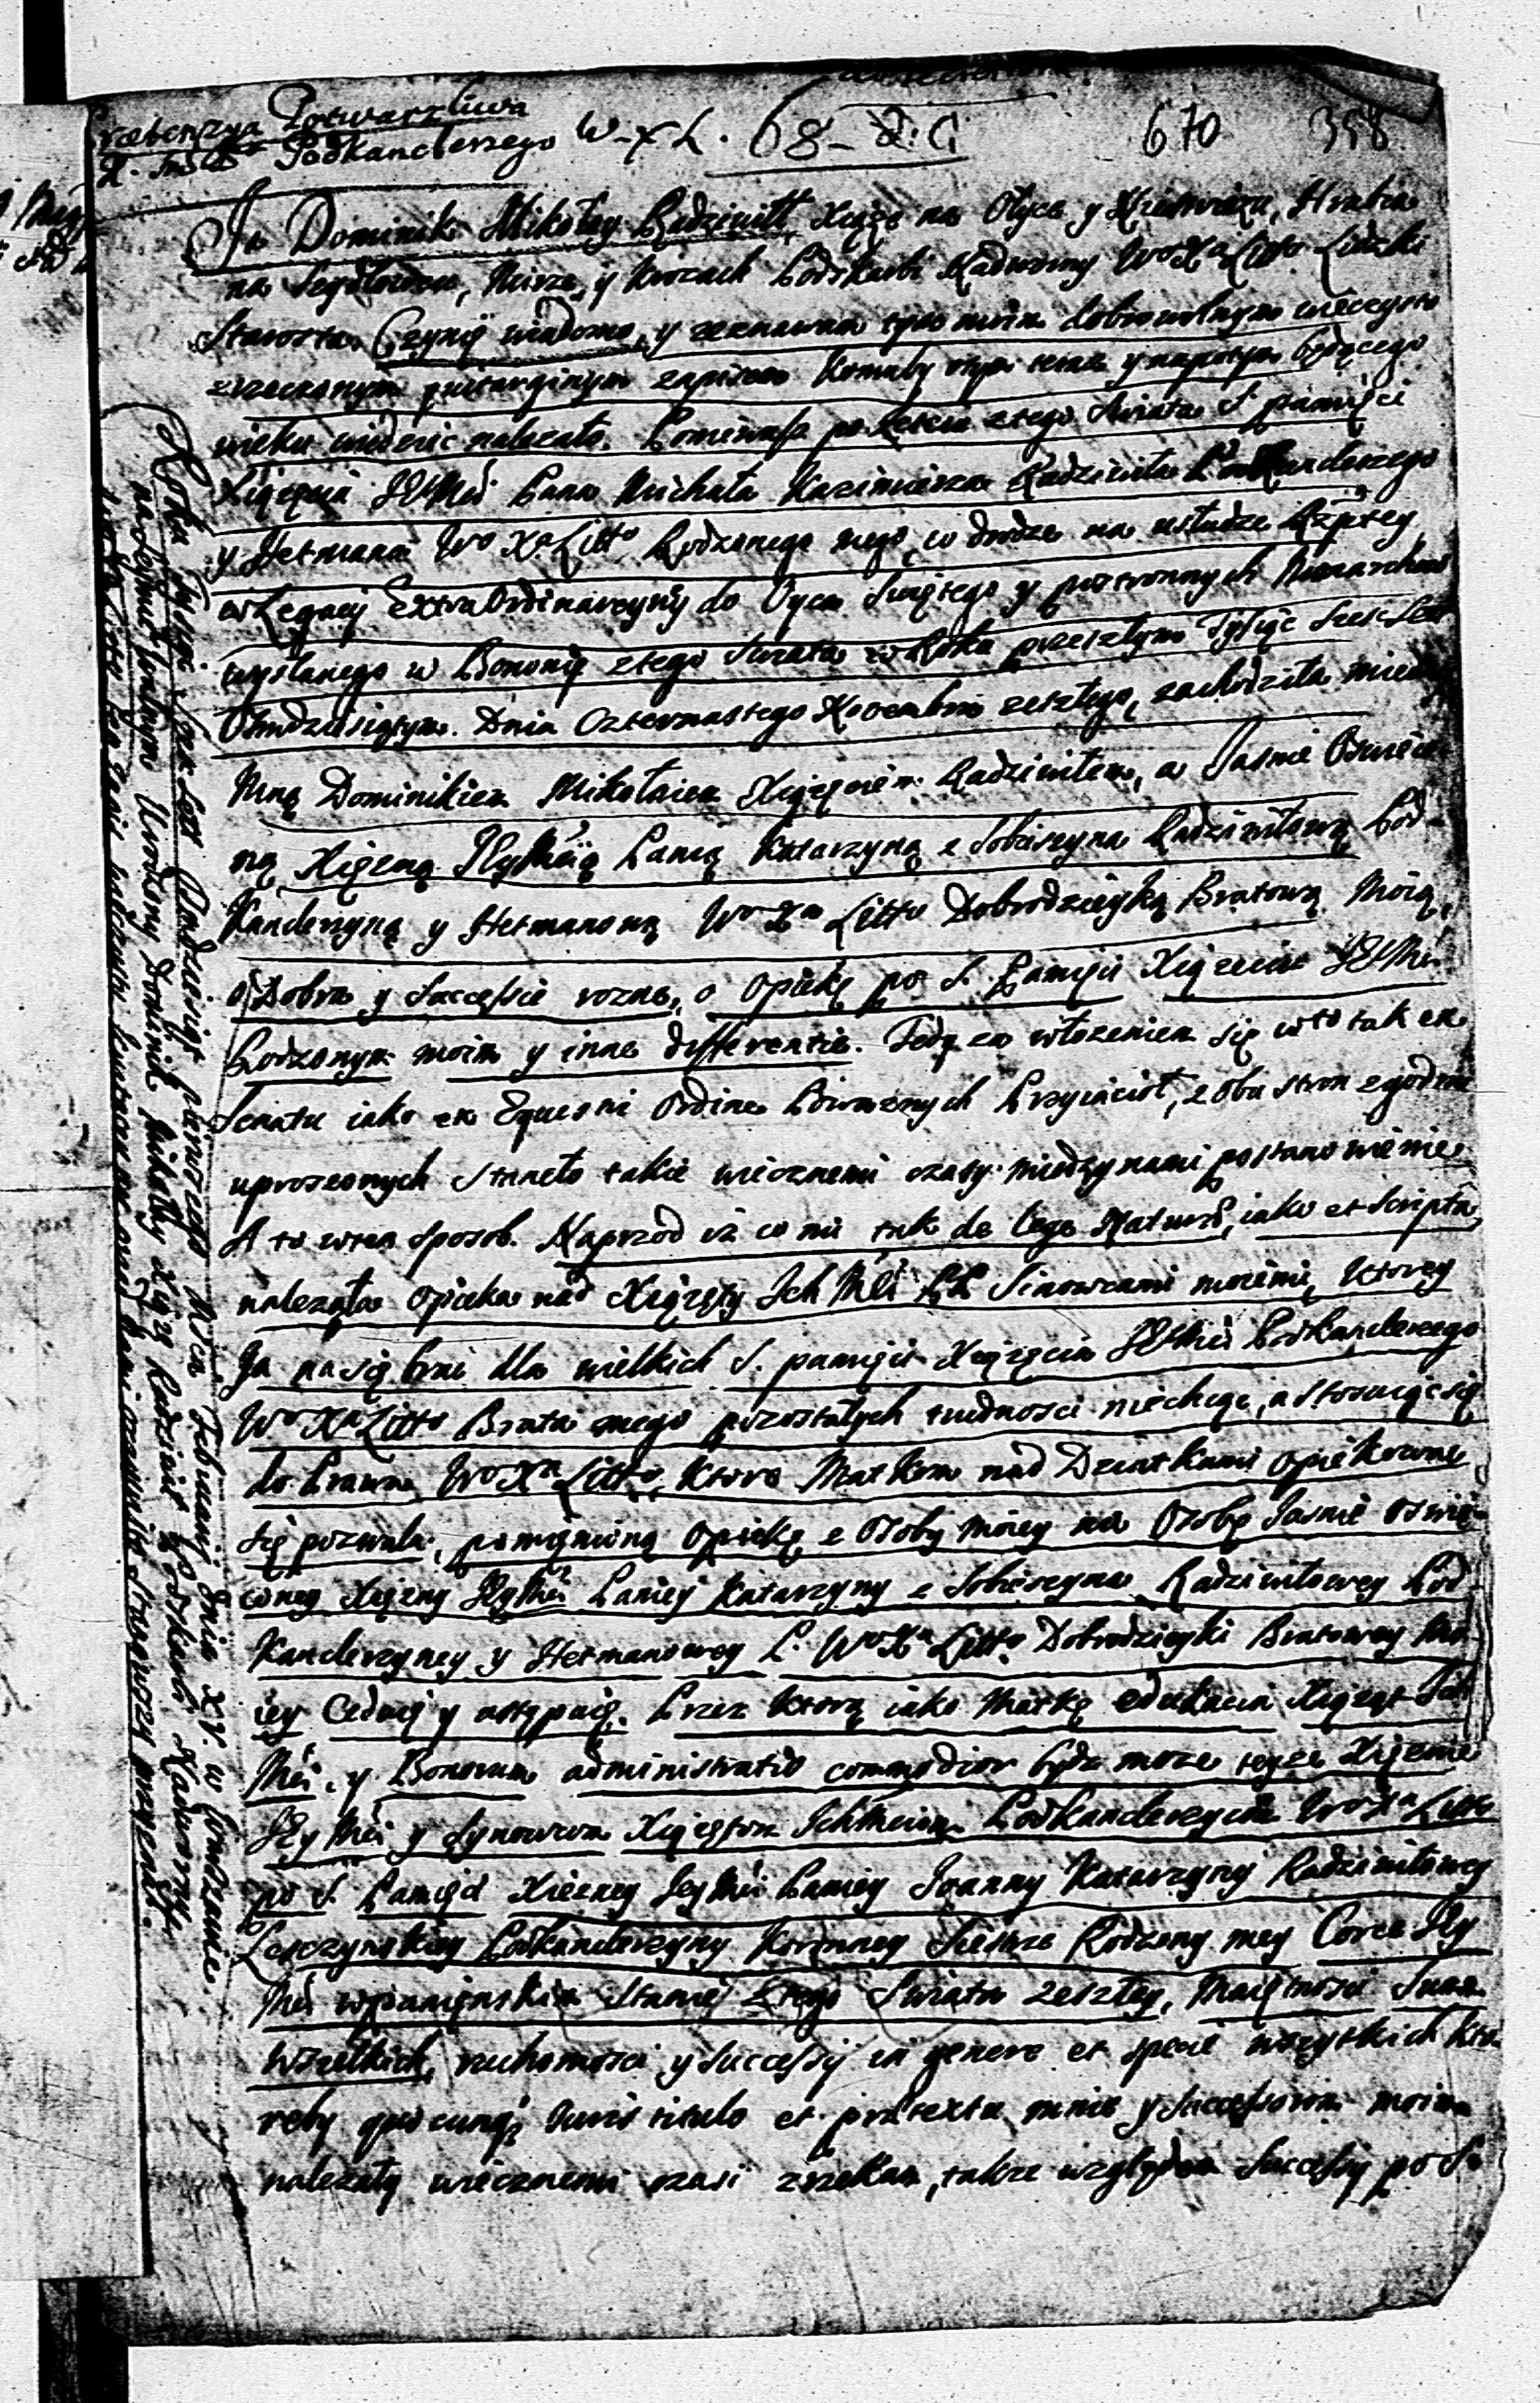 Praetensya Potwarzliwa
X. Jmści Podkanclerzego W-X L. 68 670 358
Ja Dominik Mikołay Radziwiłł Xiąże na Ołyce, y Nieświeżu, Hrabia
na Szydłowcu, Mirze, y Krozach Podskarbi Nadworny Wo Xa Litto Lidzki
Starosta. Czynię wiadomo, y zeznawam tym moim dobrowolnym wieczysto
zrzecznym zapisem Komuby otym teraz y napotym będącego
wieku wiedzieć należało. Ponieważ po ześciu ztego Świata S. pamięci
Xiążęcia JEMści Pana Michała Kazimierza Radziwiła Podkanclerzego
y Hetmana Wo Xa Litto Rodzonego mego, w drodze na usłudze Rzptey
w Legacij Extra Ordinaryiny do Oyca Świętego y postronnych Monarchow
wysłanego w Bononij ztego Świata w Roku przeszłym Tysiąc Szescset
Osmdziesiątym. Dnia Czternastego Novembris zeszłego, zachodziła miedzy
Mną Dominikiem Mikołaiem Xiążęciem Radziwiłem, a Jaśnie Oswieco
ną Xiężną JEyMścią Panią Katarzyną z Sobieszyna Radziwiłową Pod-
Kanclerzyną y Hetmanową Wo Xa Litto Dobrodzieyką Bratową Moią,
o Dobra y Successie rozne, o Opiekę po S. Pamięci Xiążęciu JEMści
Rodzonym moim y inne differentie. Tedy za włożeniem się w to tak ex
Senatu iako ex Equestri Ordine Poważnych Przyiacioł, z obu stron zgodnie
uproszonych Stanęło takie wiecznemi czasy miedzy nami postanowienie
A to w ten Sposob. Naprzod iż co mi tak de lege Naturae, iako et Scripta
należała Opieka nad Xiążęty Ich Mści PP Sinowcami moiemi, Ktorey
Ja na się brać dla wielkich S. pamięci Xiążęcia JEMści Podkanclerzego
Wo Xa Litto Brata mego pozostałych trudności niechcąc, a Stosuiąc się
do Prawa Wo Xa Litto, Ktore Matkom nad Dziatkami Opiekowac
się pozwala, pomienioną Opiekę z Osoby moiey na Osobę Jaśnie Oswie-
coney Xiężny JEyMści Paniey Katarzyny z Sobieszyna Radziwiłowey Pod
Kanclerzyney y Hetmanowey P. Wo Xa Litto Dobrodzieyki Bratowey Mo
iey Ceduię y ustępuię. Przez Ktorą iako Matkę edukacia Xiążąt Ich
Mści, y Bonorum administratio commodior bydz moze teyże Xięznie
JEy Mści y Synowcom Xiążętom IchMściom Podkanclerzycom Wo Xa Litto
po S. Pamięci Xiezney JeyMści Paniey Joanny Katarzyny Radziwiłowey
Lesczynskiey Podkanclerzyny Koronney Siestrze Rodzoney mey Corce JEy
Mści wpanienskim Stanie ztego Świata zeszłey, Maiętnosci Summ
wszelkich, ruchomosci y Successij in genere et specie wszystkich Kto
reby quocunq Iuris titulo et praetextu mnie y successorom moim
należały wiecznemi czasi zrzekam, takze względem Successij po S.
Roku Tysiąc Szescset Osmdziesiąt pierwszego Msca Februarij dnia XV. w Grodzaniu.
na Seymie Walnym Urodzony Dominik Mikołay Xiąże Radziwił Podskarbi Nadworny